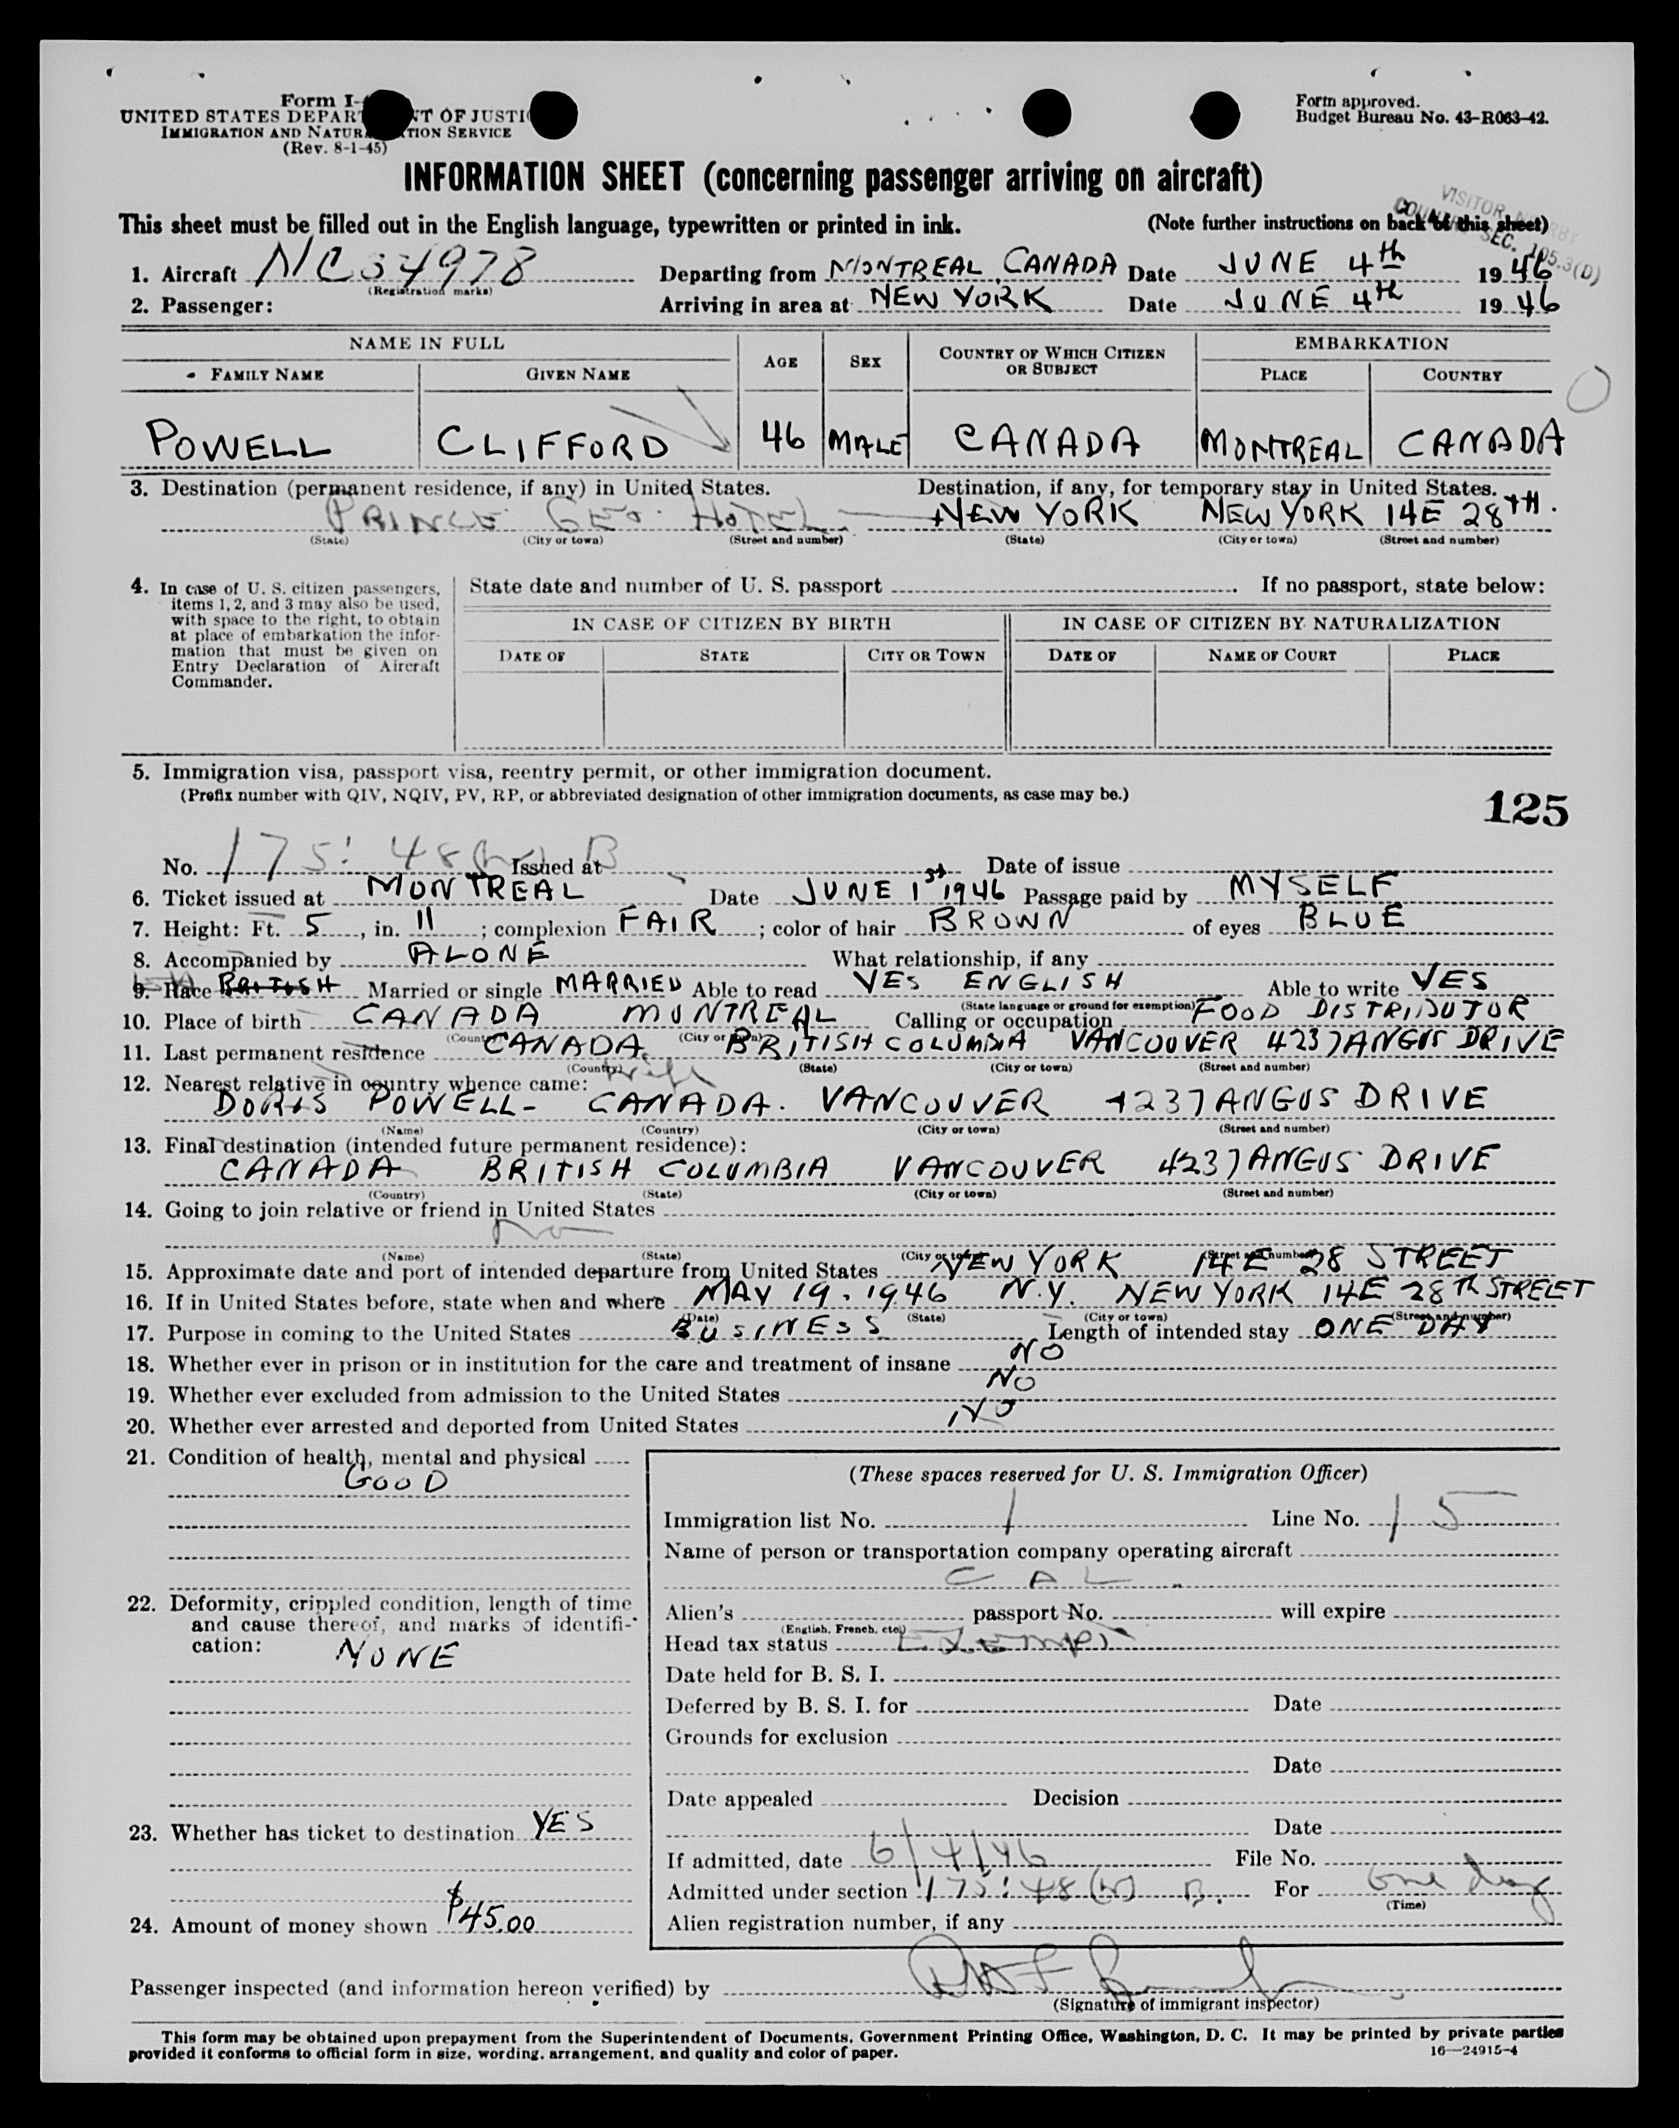 Form I-
UNITED STATES DEPAR NT OF JUSTI
IMMIGRATION AND NATUR TION SERVICE
(Rev. 8-1-45)
Form approved.
Budget Bureau No. 43-R063-42.
INFORMATION SHEET (concerning passenger arriving on aircraft)
VISITOR
SEC. 105.3(D)
This sheet must be filled out in the English language, typewritten or printed in ink. (Note further instructions on back of this sheet)
1. Aircraft NC34978 Departing from MONTREAL CANADA Date JUNE 4th 1946
(Registration marks)
2. Passenger: Arriving in area at NEW YORK Date JUNE 4th 19 46
NAME IN FULL AGE SEX COUNTRY OF WHICH CITIZEN OR SUBJECT EMBARKATION
FAMILY NAME GIVEN NAME PLACE COUNTRY
POWELL CLIFFORD 46 MALE CANADA MONTREAL CANADA
3. Destination (permanent residence, if any) in United States. Destination, if any, for temporary stay in United States.
PRINCE GEO. HOTEL NEW YORK NEW YORK 14E 28TH.
(State) (City or town) (Street and number) (State) (City or town) (Street and number)
4. In case of U. S. citizen passengers, items 1, 2, and 3 may also be used, with space to the right, to obtain at place of embarkation the information that must be given on Entry Declaration of Aircraft Commander.
State date and number of U. S. passport . If no passport, state below:
IN CASE OF CITIZEN BY BIRTH IN CASE OF CITIZEN BY NATURALIZATION
DATE OF STATE CITY OR TOWN DATE OF NAME OF COURT PLACE
5. Immigration visa, passport visa, reentry permit, or other immigration document.
(Prefix number with QIV, NQIV, PV, RP, or abbreviated designation of other immigration documents, as case may be.)
125
No. 175:48 Issued at B Date of issue
6. Ticket issued at MONTREAL Date JUNE 1st 1946 Passage paid by MYSELF
7. Height: Ft. 5, in. 11; complexion FAIR; color of hair BROWN of eyes BLUE
8. Accompanied by ALONE What relationship, if any
9. Race BRITISH Married or single MARRIED Able to read YES ENGLISH Able to write YES
(State language or ground for exemption)
10. Place of birth CANADA MONTREAL Calling or occupation FOOD DISTRIBUTOR
(Country) (City or town)
11. Last permanent residence CANADA BRITISH COLUMBIA VANCOUVER 4237 ANGUS DRIVE
(Country) (State) (City or town) (Street and number)
12. Nearest relative in country whence came: wife
DORIS POWELL - CANADA. VANCOUVER 4237 ANGUS DRIVE
(Name) (Country) (City or town) (Street and number)
13. Final destination (intended future permanent residence):
CANADA BRITISH COLUMBIA VANCOUVER 4237 ANGUS DRIVE
(Country) (State) (City or town) (Street and number)
14. Going to join relative or friend in United States
No
(Name) (State) (City or town) (Street and number)
15. Approximate date and port of intended departure from United States NEW YORK 14E 28 STREET
16. If in United States before, state when and where MAY 19, 1946 N.Y. NEW YORK 14E 28TH STREET
(Date) (State) (City or town) (Street and number)
17. Purpose in coming to the United States BUSINESS Length of intended stay ONE DAY
18. Whether ever in prison or in institution for the care and treatment of insane NO
19. Whether ever excluded from admission to the United States NO
20. Whether ever arrested and deported from United States NO
21. Condition of health, mental and physical
GOOD
22. Deformity, crippled condition, length of time and cause thereof, and marks of identification: NONE
23. Whether has ticket to destination YES
24. Amount of money shown $45.00
(These spaces reserved for U. S. Immigration Officer)
Immigration list No. 1 Line No. 15
Name of person or transportation company operating aircraft
C A L
Alien's passport No. will expire
(English, French, etc.)
Head tax status Exempt
Date held for B. S. I.
Deferred by B. S. I. for Date
Grounds for exclusion
Date
Date appealed Decision
Date
If admitted, date 6/4/46 File No.
Admitted under section 175:48 B. For One day
(Time)
Alien registration number, if any
Passenger inspected (and information hereon verified) by
(Signature of immigrant inspector)
This form may be obtained upon prepayment from the Superintendent of Documents, Government Printing Office, Washington, D. C. It may be printed by private parties
provided it conforms to official form in size, wording, arrangement, and quality and color of paper.
16—24915-4